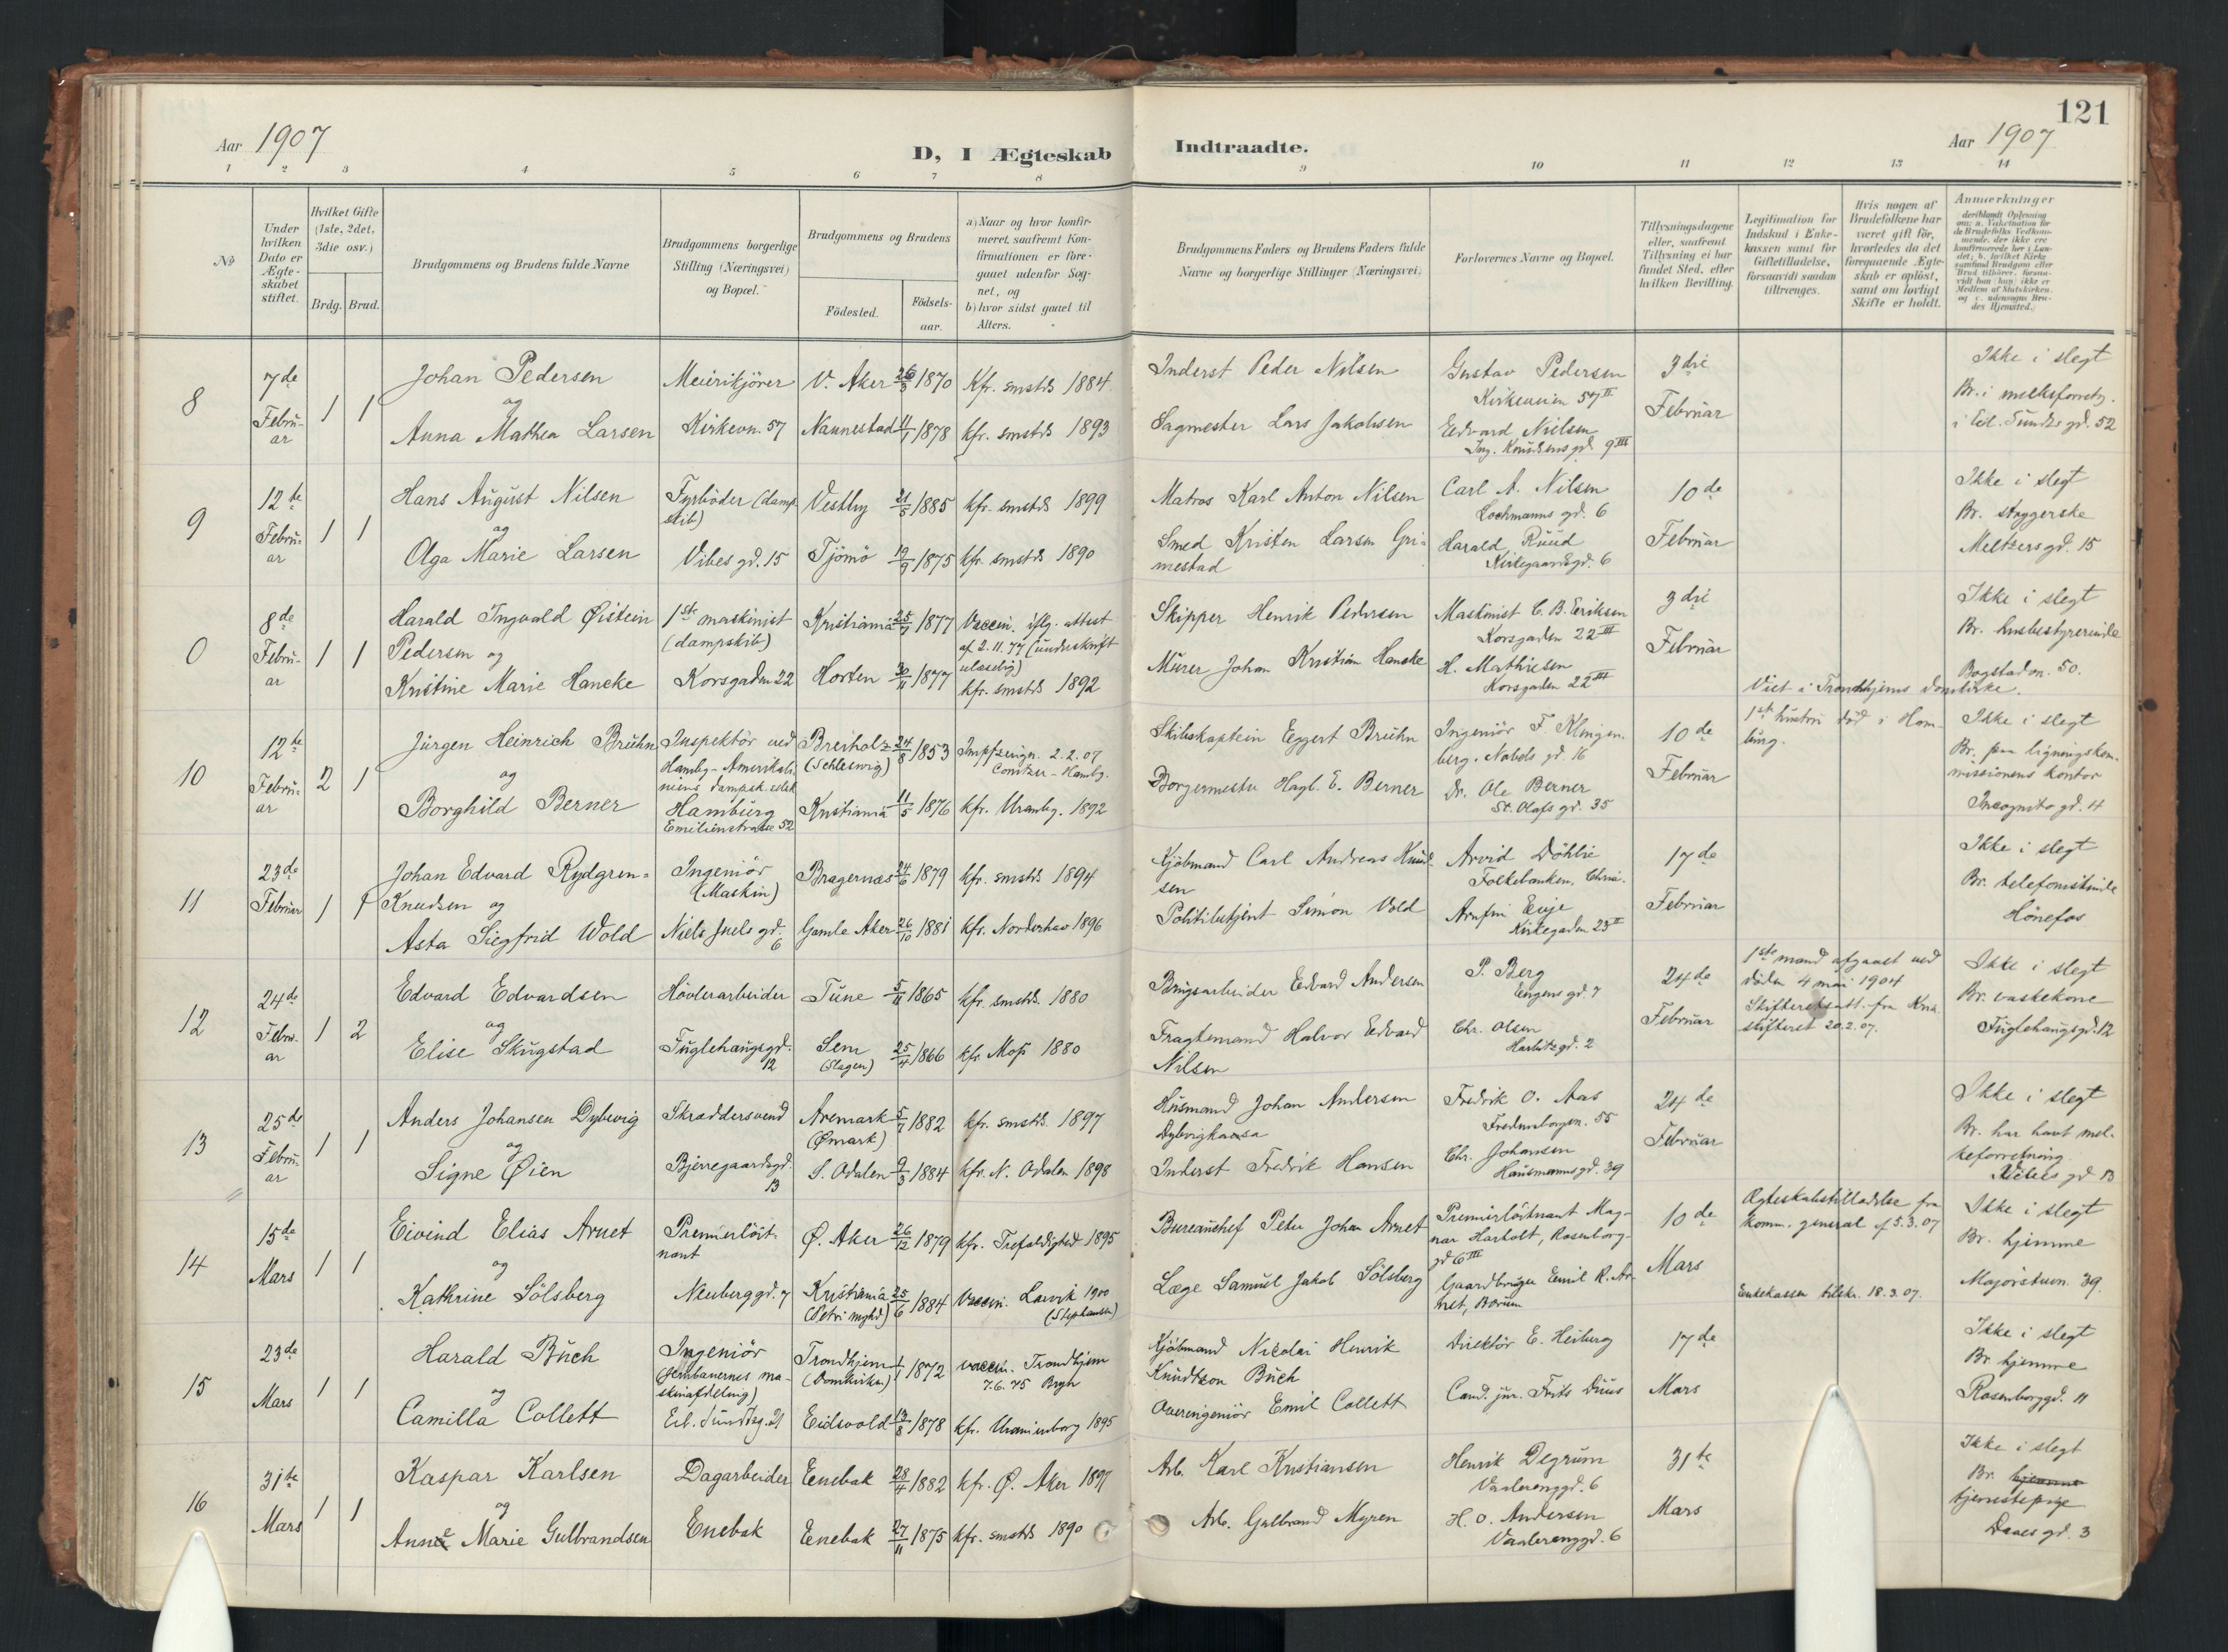 121
Aar 1907
D, I Ægteskab Indtraadte.
Aar 1907
1 2 3 4 5 6 7 8 9 10 11 12 13 14
No
Under
hvilken
Dato er
Ægte-
skabet
stiftet.
Hvilket Gifte
(1ste, 2det,
3die osv.)
Brdg. Brud.
Brudgommens og Brudens fulde Navne
Brudgommens borgerlige
Stilling (Næringsvei)
og Bopæl.
Brudgommens og Brudens
Födested.
Födsels-
aar.
a) Naar og hvor konfir-
meret, saafremt Kon-
firmationen er fore-
gaaet udenfor Sog-
net, og
b) hvor sidst gaaet til
Alters.
Brudgommens Faders og Brudens Faders fulde
Navne og borgerlige Stillinger (Næringsvei)
Forlovernes Navne og Bopæl.
Tillysningsdagene
eller, saafremt
Tillysning ei har
fundet Sted, efter
hvilken Bevilling.
Legitimation for
Indskud i Enke-
kassen samt for
Giftetilladelse,
forsaavidt saadan
tiltrænges.
Hvis nogen af
Brudefolkene har
været gift för,
hvorledes da det
foregaaende Ægte-
skab er oplöst,
samt om lovligt
Skifte er holdt.
Anmærkninger
deriblandt Oplysning
om: a. Vakcination for
de Brudefolks Vedkom-
mende, der ikke ere
konfirmerede her i Lan-
det; b. hvilket Kirke-
samfund Brudgom eller
Brud tilhörer, forsaa-
vidt han (hun) ikke er
Medlem af Statskirken,
og c. udensogns Bru-
des Hjemsted.)
8
7de
Febru-
ar
1 1
Johan Pedersen
og
Anna Mathea Larsen
Meierikjörer
Kirkevn. 57
V. Aker 26/3 1870
Nannestad 11/1 1878
Kfr. smstds 1884
kfr. smstds 1893
Inderst Peder Nilsen
Sagmester Lars Jakobsen
Gustav Pedersen
Kirkeveien 57 II
Edvard Nielsen
Ing. Knudsens gd. 9 III
3die
Februar
Ikke i slegt
Br. i melkeforretn.
i Eil. Sundts gd. 52
9
12te
Febru-
ar
1 1
Hans August Nilsen
og
Olga Marie Larsen
Fyrböder (damp
skib)
Vibes gd. 15
Vestby 21/5 1885
Tjömö 19/9 1875
kfr. smstds 1899
kfr. smstds 1890
Matros Karl Anton Nilsen
Smed Kristen Larsen Gri-
mestad
Carl A. Nilsen
Lochmanns gd. 6
Harald Ruud
Kirkegaardsgd. 6
10de
Februar
Ikke i slegt
Br. stryggerske
Meltzers gd. 15
0
8de
Febru-
ar
1 1
Harald Ingvald Øistein
Pedersen og
Kristine Marie Hancke
1ste maskinist
(dampskib)
Korsgaden 22
Kristiania 25/7 1877
Horten 30/11 1877
Vaccin. iflg. attest
af 2.11.77 (underskrift
ulæselig)
kfr. smstds 1892
Skipper Henrik Pedersen
Murer Johan Kristian Hancke
Maskinist C. B. Eriksen
Korsgaden 22 III
H. Mathiesen
Korsgaden 22 III
3die
Februar
Ikke i slegt
Br. husbestyrerinde
Bogstadvn. 50.
Viet i Trondhjems domkirke.
10
12te
Febru-
ar
2 1
Jürgen Heinrich Bruhn
og
Borghild Berner
Inspektör ved
Hambg-Amerikali-
niens dampsk. selsk
Hamburg
Emilienstrasse 52
Breiholz (Schleswig) 24/8 1853
Kristiania 11/5 1876
Impfzeugn. 2.2.07
Conitzer - Hambg.
kfr. Uranbg. 1892
Skibskaptein Eggert Bruhn
Borgermester Hagb. E. Berner
Ingeniör F. Klingen-
berg. Nobels gd. 16
Dr. Ole Berner
St. Olafs gd. 35
10de
Februar
1ste hustru död i Ham-
burg.
Ikke i slegt
Br. paa ligningskom-
missionens kontor
Incognito gd. 4
11
23de
Februar
1 1
Johan Edvard Rydgren-
Knudsen og
Asta Siegfrid Wold
Ingeniör
(Maskin)
Niels Juels gd.
6
Bragernæs 24/6 1879
Gamle Aker 26/10 1881
kfr. smstds 1894
kfr. Norderhov 1896
Kjöbmand Carl Andreas Knud-
sen
Politibetjent Simon Vold
Arvid Döhlie
Folkebanken, Chria.
Arnfin Evje
Kirkegaden 23 II
17de
Februar
Ikke i slegt
Br. telefonistinde
Hönefos
12
24de
Febru-
ar
1 2
Edvard Edvardsen
og
Elise Skugstad
Hövlerarbeider
Fuglehaugsgd.
12
Tune 5/11 1865
Sem
(Slagen) 25/4 1866
kfr. smstds. 1880
kfr. Moss 1880
Brugsarbeider Edvard Andersen
Fragtemand Halvor Edvard
Nilsen
P. Berg
Eugens gd. 7
Chr. Olsen
Harbitz gd. 2
24de
Februar
1ste mand afgaaet ved
döden 4 mai 1904
Skifteretsatt. fra Kria
skifteret 20.2.07.
Ikke i slegt
Br. vaskekone
Fuglehaugsgd. 12
13
25de
Febru-
ar
1 1
Anders Johansen Dybevig
og
Signe Øien
Skræddersvend
Bjerregaardsgd.
13
Aremark
(Ømark) 5/7 1882
S. Odalen 9/3 1884
kfr. smstds. 1897
kfr. N. Odalen 1898
Husmand Johan Andersen
Dybvighaasa
Inderst Fredrik Hansen
Fredrik O. Aas
Fredensborgvn. 55
Chr. Johansen
Hausmannsgd. 39
24de
Februar
Ikke i slegt
Br. har havt mel-
keforretning
gd 13
14
15de
Mars
1 1
Eivind Elias Arnet
og
Kathrine Sölsberg
Premierlöit-
nant
Neuberggd. 7
Ø. Aker 26/12 1879
Kristiania
(Petri mghd) 25/6 1884
kfr. Trefoldighed 1895
Vaccin. Larvik 1900
(Stephansen)
Bureauchef Peter Johan Arnet
Læge Samuel Jakob Sölsberg
Premierlöitnant Mag-
nar Harholt, Rosenborg-
gd 6 III
Gaardbruger Emil R. Ar-
net, Borum
10de
Mars
Ægteskabstilladelse fra
komm. general af 5.3.07
Enkekassen tilskr. 18.3.07.
Ikke i slegt
Br. hjemme
Majorstuvn. 39.
15
23de
Mars
1 1
Harald Buch
og
Camilla Collett
Ingeniör
(Jernbanernes ma-
skinafdeling)
Eil. Sundtsg. 21
Trondhjem
(Domkirken) 1/1 1872
Eidsvold 13/8 1878
vaccin. Trondhjem
7.6.75 Bryn
kfr. Uranienborg 1895
Kjöbmand Nicolai Henrik
Knudtzon Buch
Overingeniör Emil Collett
Direktör E. Heiberg
Cand. jur. Frits Duus
17de
Mars
Ikke i slegt
Br. hjemme
Rosenborggd. 11
16
31te
Mars
1 1
Kaspar Karlsen
og
Anne Marie Gulbrandsen
Dagarbeider
Enebak
Enebak 28/4 1882
Enebak 27/11 1875
kfr. Ø. Aker 1897
kfr. smstds 1890
Arb. Karl Kristiansen
Arb. Gulbrand Myren
Henrik Degrum
Vaalerenggd. 6
H. O. Andersen
Vaalerenggd. 6
31te
Mars
Ikke i slegt
Br. hjemme
tjenestepige
Daaes gd. 3